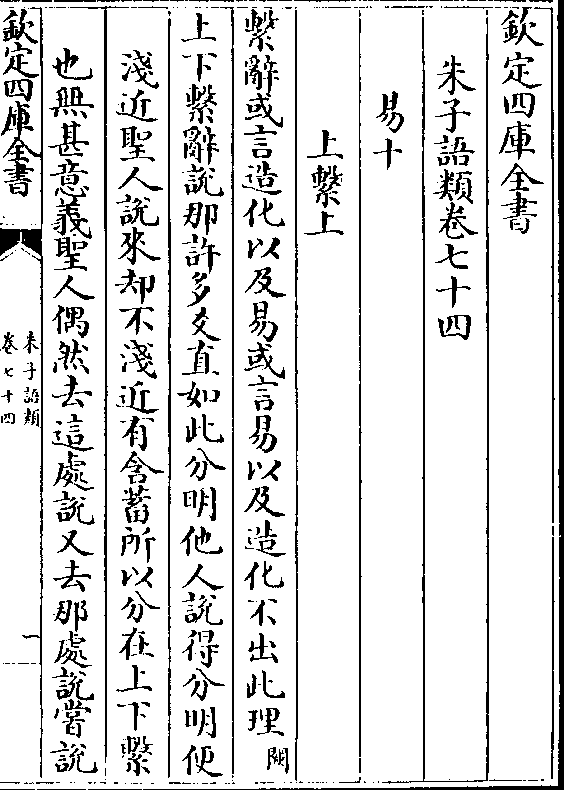 欽定四庫全書
朱子語類卷七十四
易十
上繫上
繫辭或言造化以及易或言易以及造化不出此理閎
上下繫辭說那許多爻直如此分明他人說得分明便
淺近聖人說來却不淺近有含蓄所以分在上下繫
也無甚意義聖人偶然去這處說又去那處說嘗說
欽定四庫全書
朱子語類
卷七十四
一